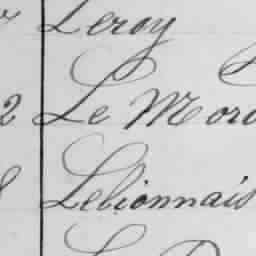 Leroy
2 Le Mor
8 Lebionnais